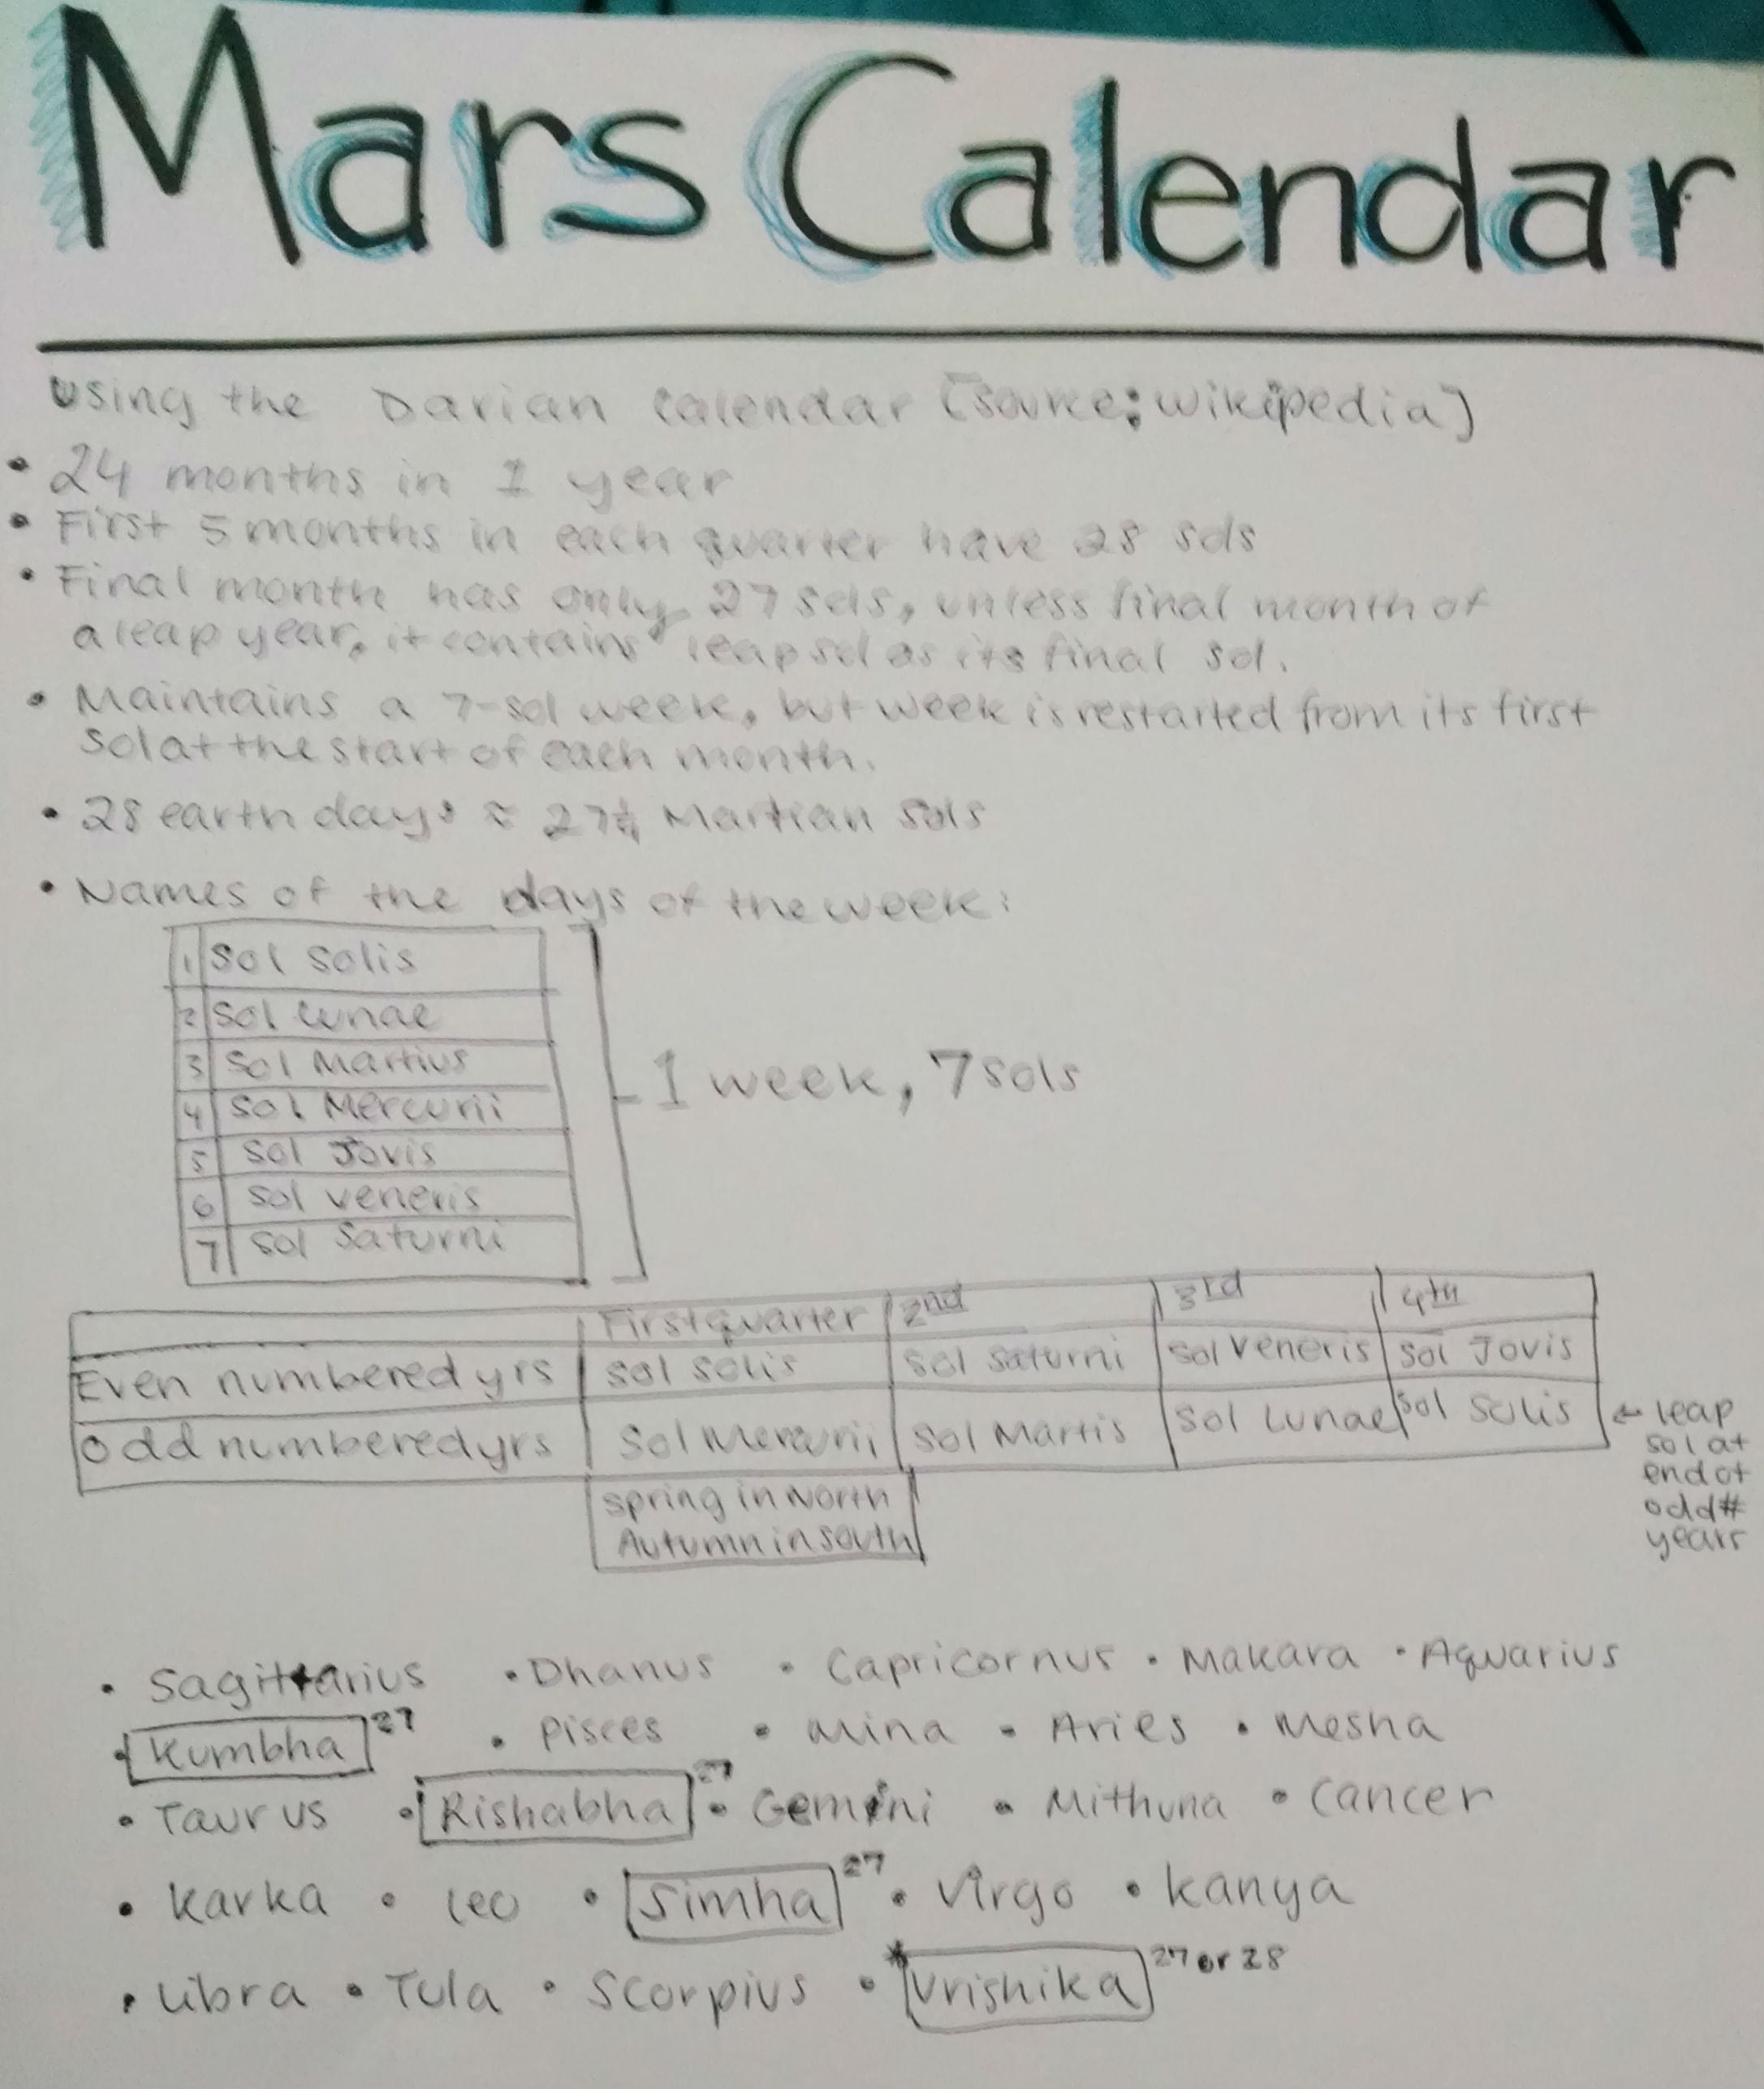 Mars Calendar
Using the Darian calendar [source: wikipedia]
• 24 months in 1 year
• First 5 months in each quarter have 28 sols
• Final month has only 27 sols, unless final month of
a leap year, it contains leap sol as its final sol.
• Maintains a 7-sol week, but week is restarted from its first
sol at the start of each month.
• 28 earth days ≈ 27¼ Martian sols
• Names of the days of the week:
1 Sol Solis
2 Sol Lunae
3 Sol Martius
4 Sol Mercurii
5 Sol Jovis
6 Sol Veneris
7 Sol Saturni
1 week, 7 sols
First quarter 2nd 3rd 4th
Even numbered yrs Sol Solis Sol Saturni Sol Veneris Sol Jovis
Odd numbered yrs Sol Mercurii Sol Martis Sol Lunae Sol Solis ← leap
sol at
end of
odd #
years
Spring in North
Autumn in South
• Sagittarius • Dhanus • Capricornus • Makara • Aquarius
• Kumbha 27 • Pisces • Mina • Aries • Mesha
• Taurus • Rishabha 27 • Gemini • Mithuna • Cancer
• Karka • Leo • Simha 27 • Virgo • Kanya
• Libra • Tula • Scorpius • *Vrishika 27 or 28